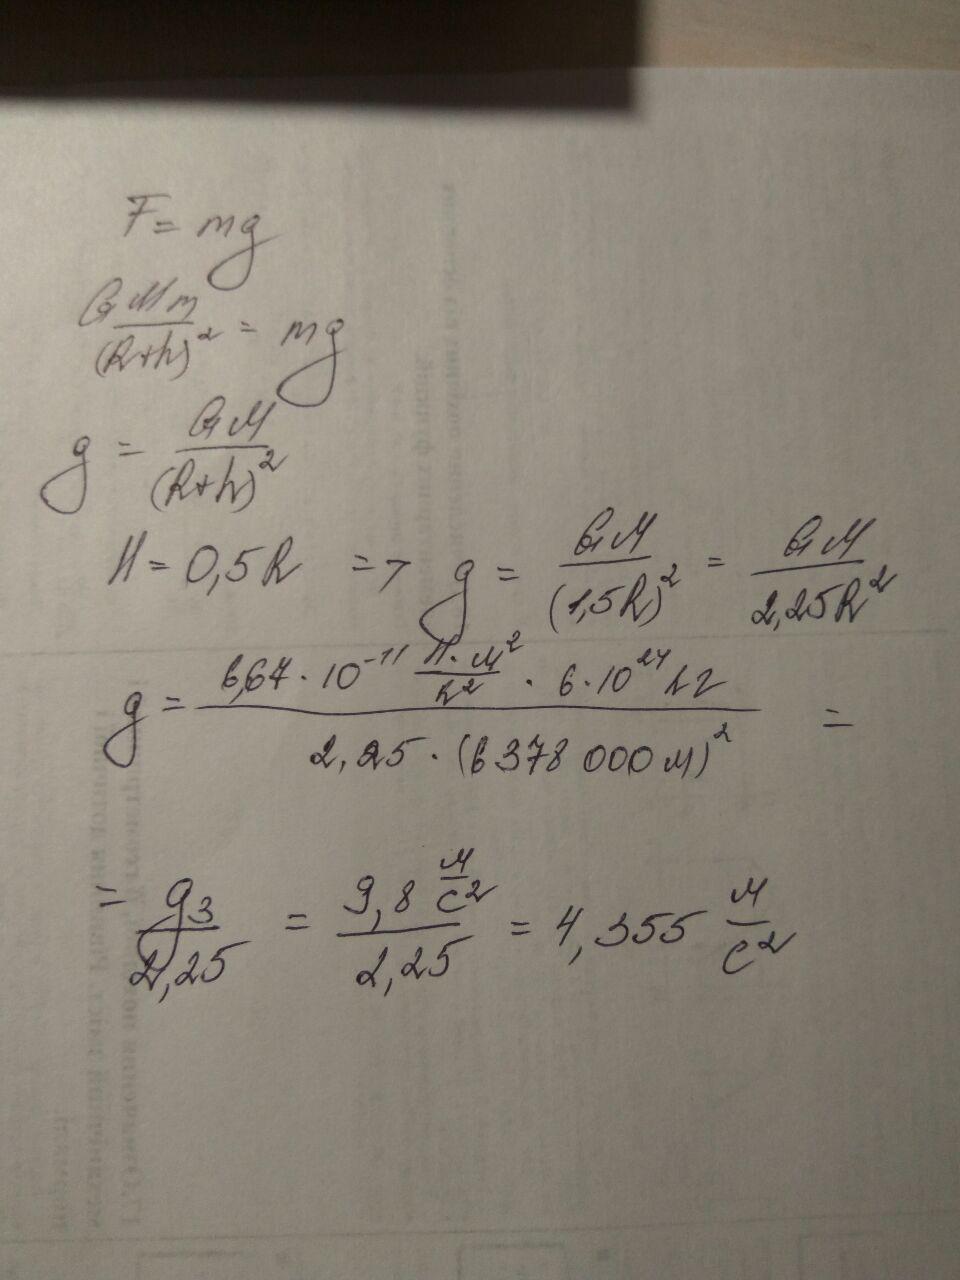 F = mg
GMm/(R+h)² = mg
g = GM/(R+h)²
H = 0,5R => g = GM/(1,5R)² = GM/2,25R²
g = 6,67·10⁻¹¹ Н·м²/кг² · 6·10²⁴кг / 2,25·(6378 000м)² =
= g₃/2,25 = 9,8 м/с² / 2,25 = 4,355 м/с²